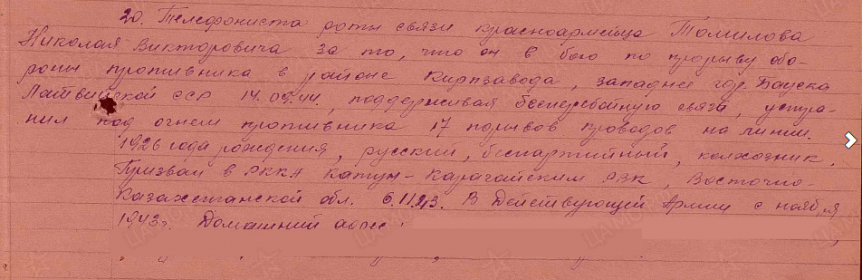 20. Телефониста роты связи красноармейца Томилова
Николая Викторовича за то, что он в бою по прорыву обо-
роны противника в районе Кирпзавода, западнее гор. Бауска
Латвийской ССР 14.09.44, поддерживая бесперебойную связь, устра-
нил под огнем противника 17 порывов проводов на линии.
1926 года рождения, русский, беспартийный, колхозник.
Призван в РККА Катон-Карагайским РВК, Восточно-
Казахстанской обл. 6.11.43. В Действующей Армии с ноября
1943 г. Домашний адрес: